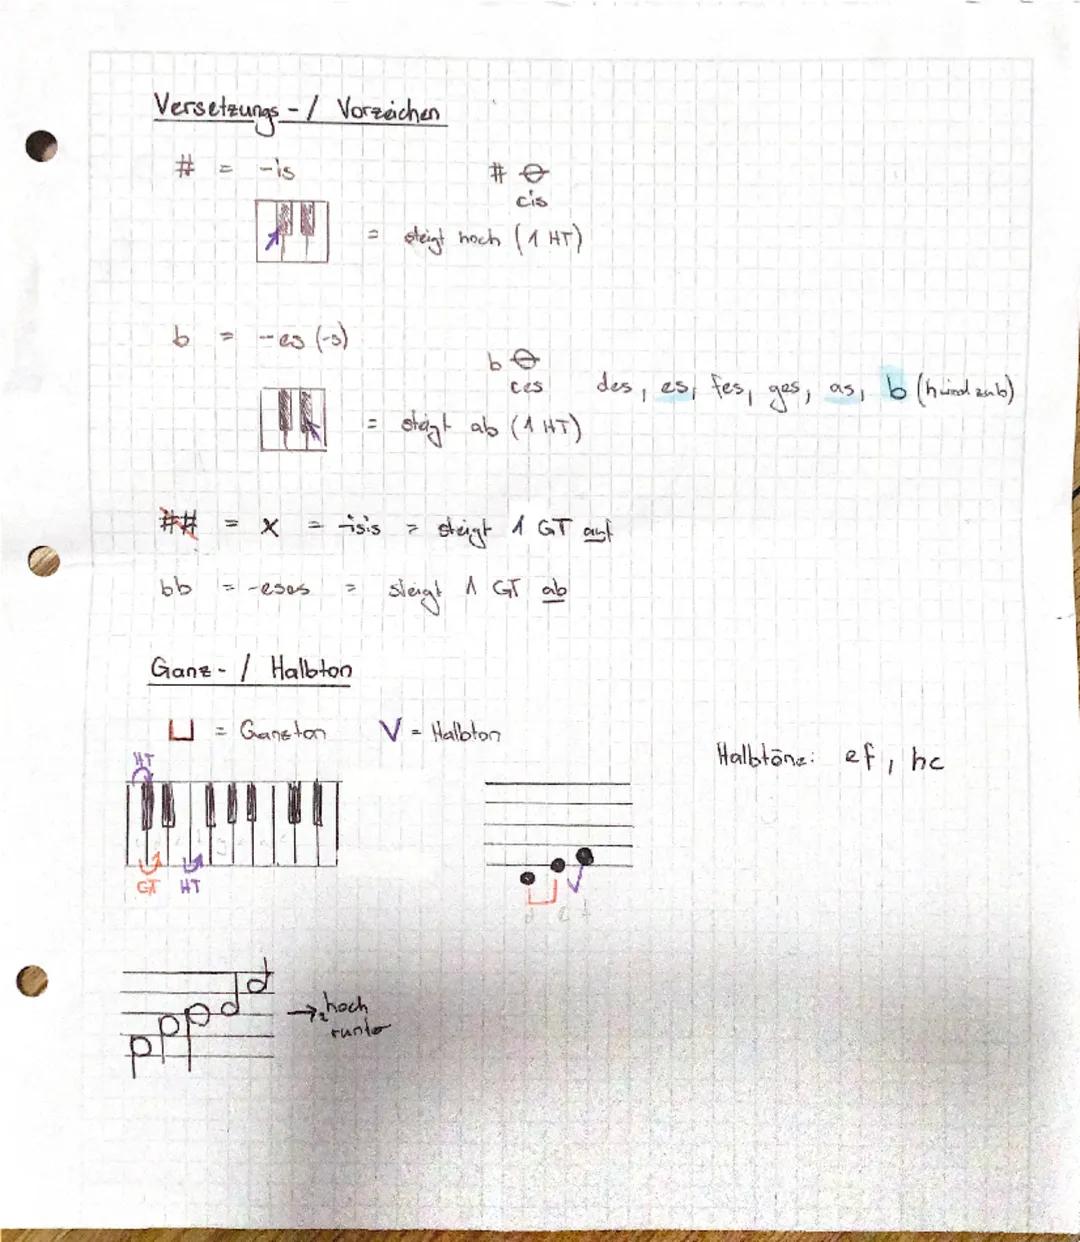 Versetzungs-/ Vorzeichen
# = -is
# cis
= steigt hoch (1 HT)
b = -es (-s)
b ces des, es, fes, ges, as, b (h wird zu b)
= steigt ab (1 HT)
## = x = -isis = steigt 1 GT auf
bb = -eses = steigt 1 GT ab
Ganz- / Halbton
= Ganzton V = Halbton
Halbtöne: ef, hc
HT
GT HT
d e f
→ hoch
runter